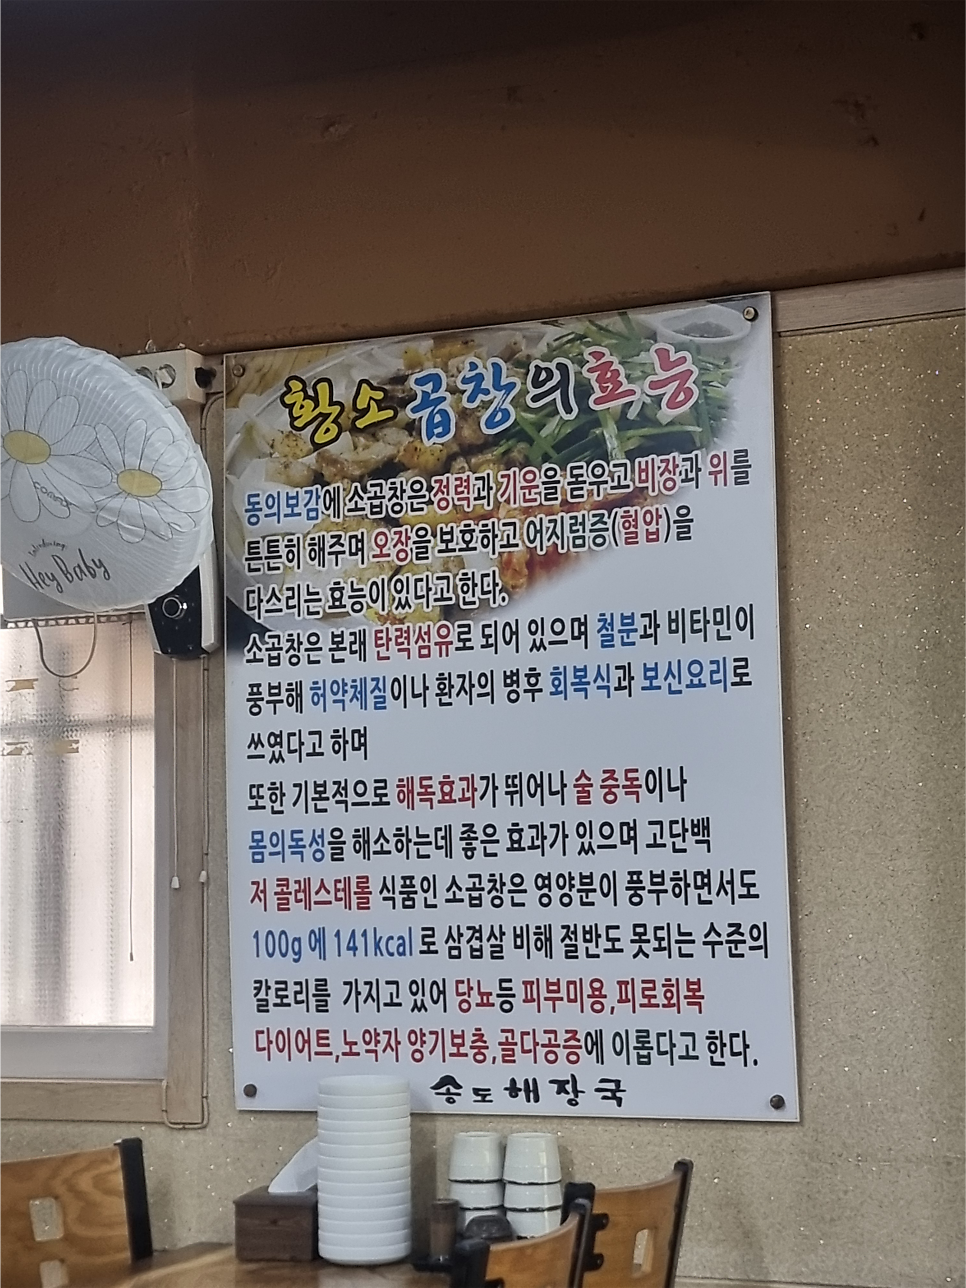 황소 곱창의효능
동의보감에 소곱창은 정력과 기운을 돋우고 비장과 위를
튼튼히 해주며 오장을 보호하고 어지럼증(혈압)을
다스리는 효능이 있다고 한다.
소곱창은 본래 탄력섬유로 되어 있으며 철분과 비타민이
풍부해 허약체질이나 환자의 병후 회복식과 보신요리로
쓰였다고 하며
또한 기본적으로 해독효과가 뛰어나 술 중독이나
몸의독성을 해소하는데 좋은 효과가 있으며 고단백
저 콜레스테롤 식품인 소곱창은 영양분이 풍부하면서도
100g 에 141kcal 로 삼겹살 비해 절반도 못되는 수준의
칼로리를 가지고 있어 당뇨등 피부미용,피로회복
다이어트,노약자 양기보충,골다공증에 이롭다고 한다.
송도해장국
Hey Baby